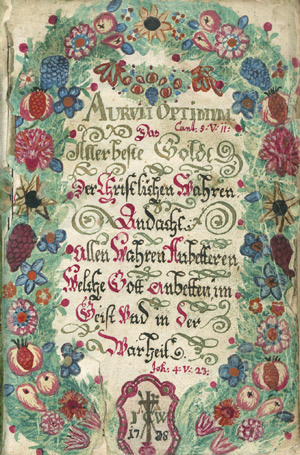 AURUM OPTIMUM
Cant: 5. V: 11:
Das
Allerbeste Goldt
Der Christlichen Wahren
Andacht.
Allen Wahren Anbetteren
Welche Gott Anbetten im
Geist Und in der
Warheit.
Joh: 4: V: 23:
I W
17 86